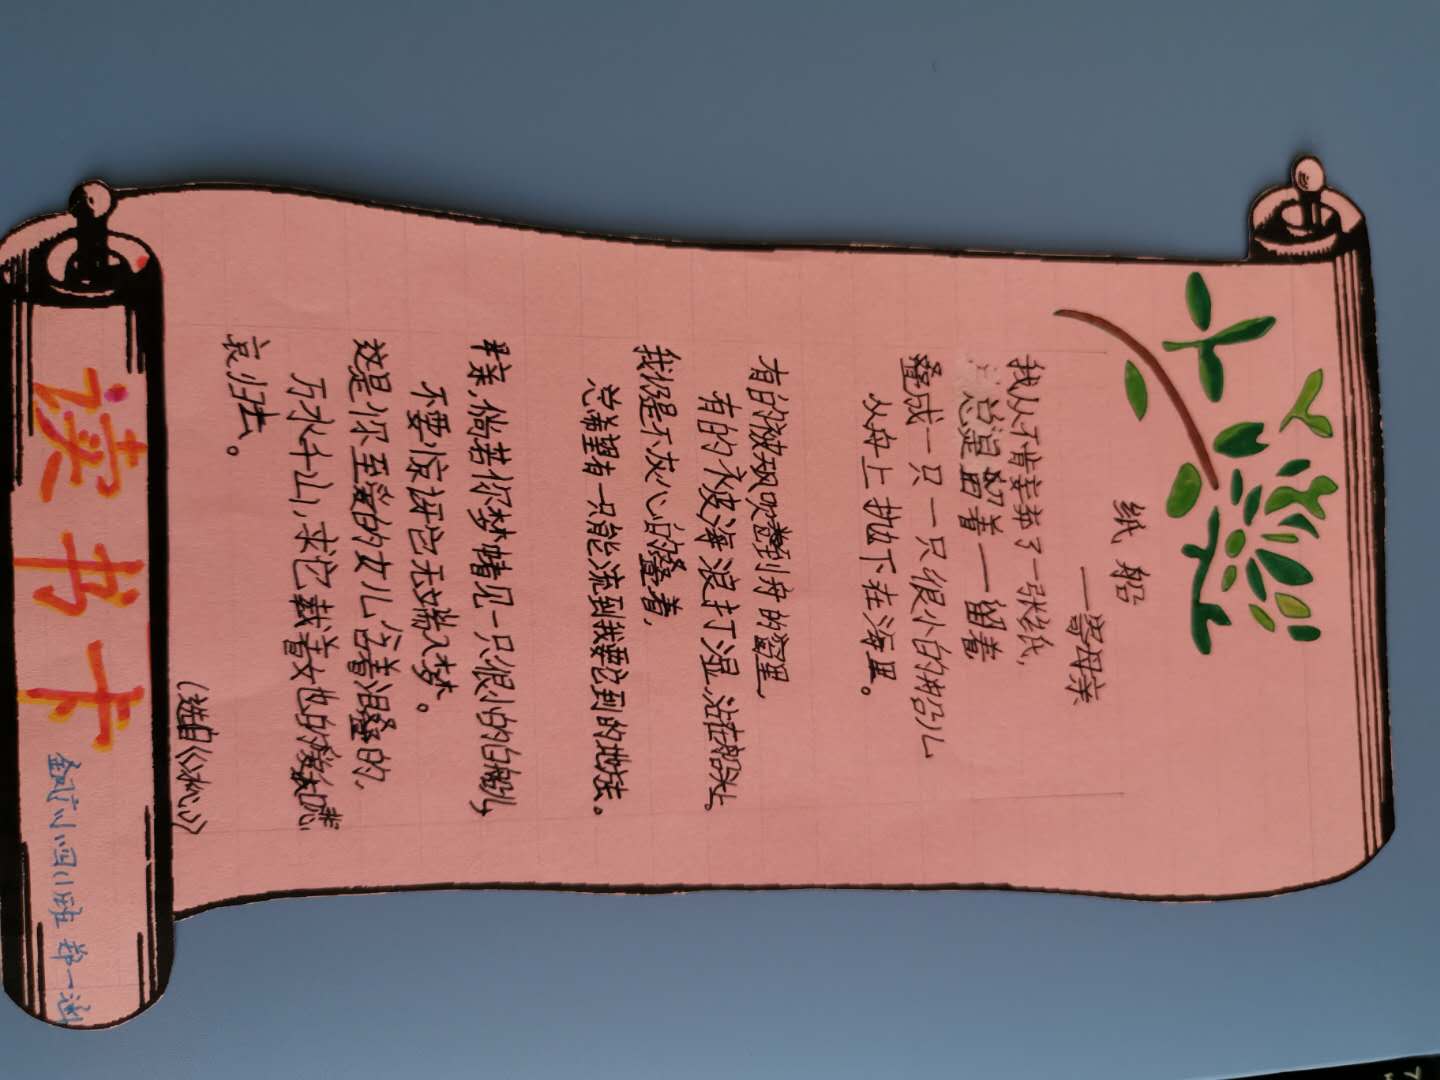 纸船
——寄母亲
我从不肯妄弃了一张纸,
总是留着——留着,
叠成一只一只很小的船儿
从舟上抛下在海里。
有的被天风吹卷到舟的窗里,
有的被海浪打湿,沾在船头上。
我仍是不灰心的叠着,
总希望有一只能流到我要它到的地方去。
母亲,倘若你梦中看见一只很小的白船儿,
不要惊讶它无端入梦。
这是你至爱的女儿含着泪叠的,
万水千山,求它载着她的爱和悲
哀归去。
(选自《冰心》)
读书卡